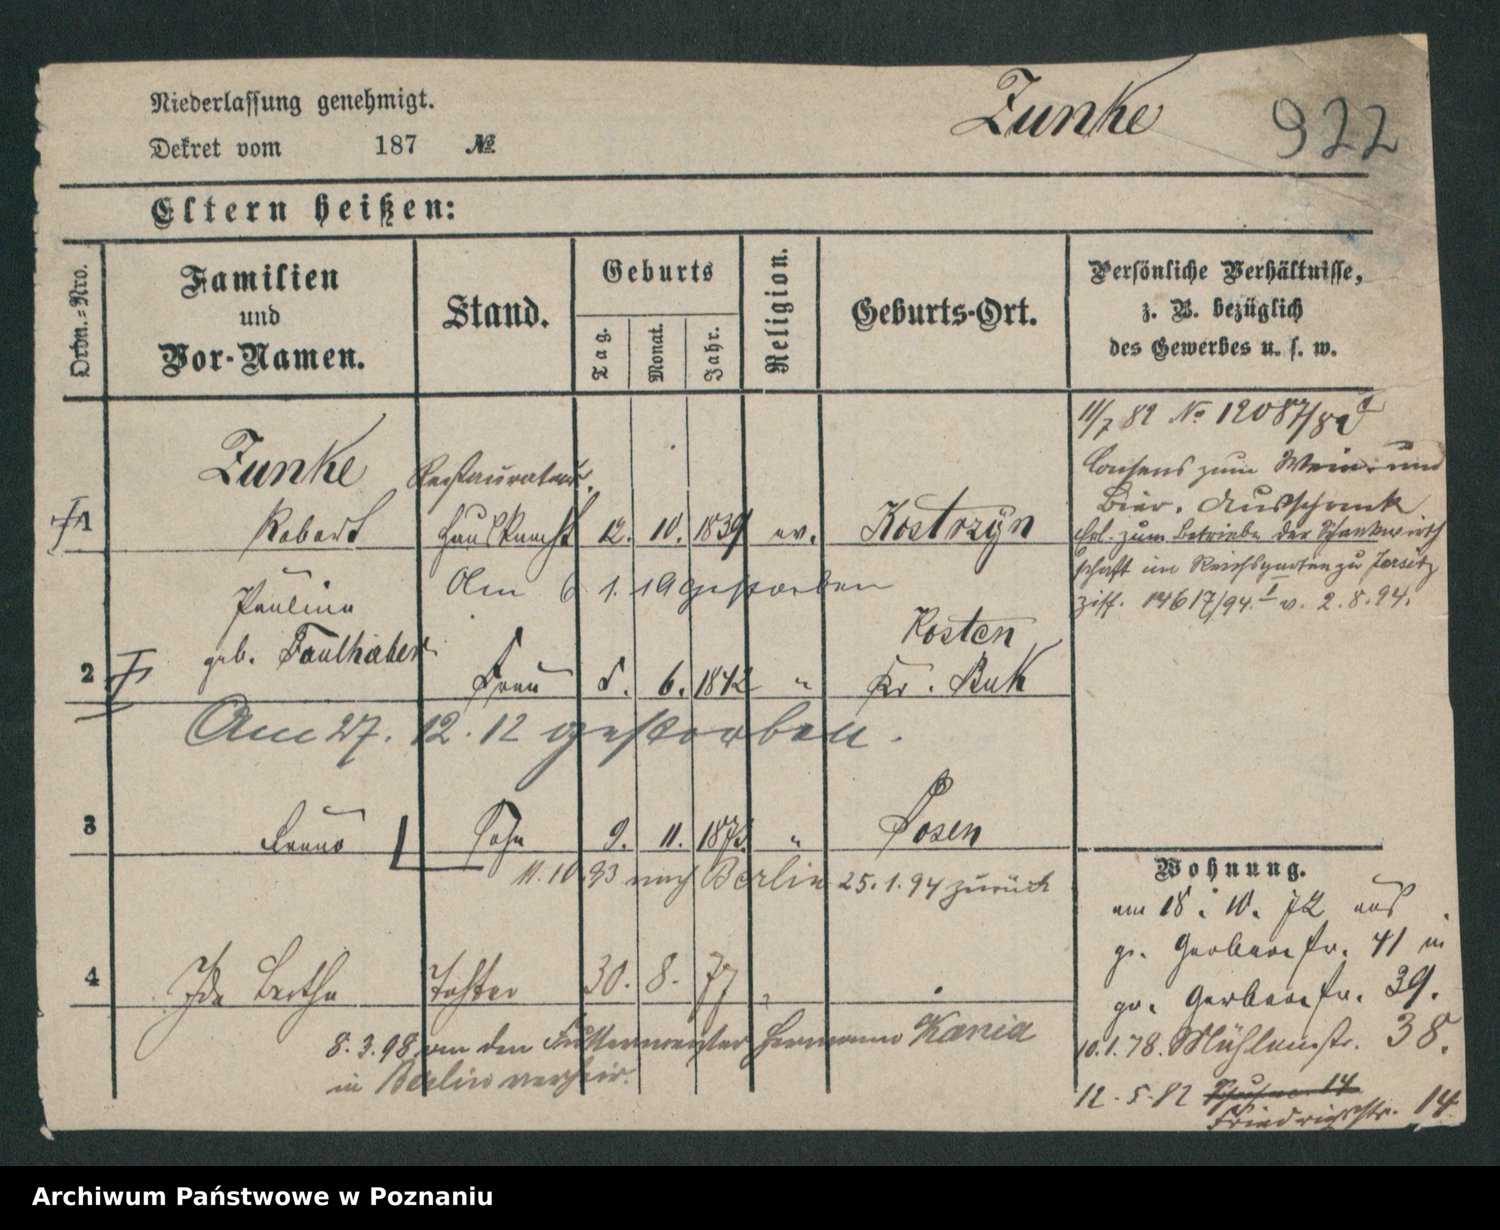 Niederlassung genehmigt.
Zunke
922
Dekret vom 187 №
Eltern heißen:
Ordn.-Nro.
Familien
und
Vor-Namen.
Stand.
Geburts
Tag.
Monat.
Jahr.
Religion.
Geburts-Ort.
Persönliche Verhältnisse,
z. B. bezüglich
des Gewerbes u. s. w.
11/7 82 № 12087/82
Consens zum Wein- und
Bier-Ausschank
Erl. zum Betriebe der Schankwirth
schaft im Reichsgarten zu Jersitz
Ziff. 14617/94. I v. 2.8.94.
Zunke Restaurateur.
1 Robert Hausknecht 12. 10. 1839 ev. Kostrzyn
Am 6 1. 19 gestorben
Pauline
geb. Faulhaber
2 Frau 5. 6. 1842 " Kosten
Kr. Buk
Am 27. 12. 12 gestorben.
3 Bruno Sohn 9. 11. " Posen
11.10.93 nach Berlin 25.1.94 zurück
4 Ida Bertha Tochter 30. 8. 77 "
8.3.98 an den Hermann Kania
in Berlin verheir.
Wohnung.
am 18. 10. 72 aus
gr. Gerberstr. 41 in
gr. Gerberstr. 39.
10.1.78. Mühlenstr. 38.
12.5.82
Friedrichstr. 14
Archiwum Państwowe w Poznaniu